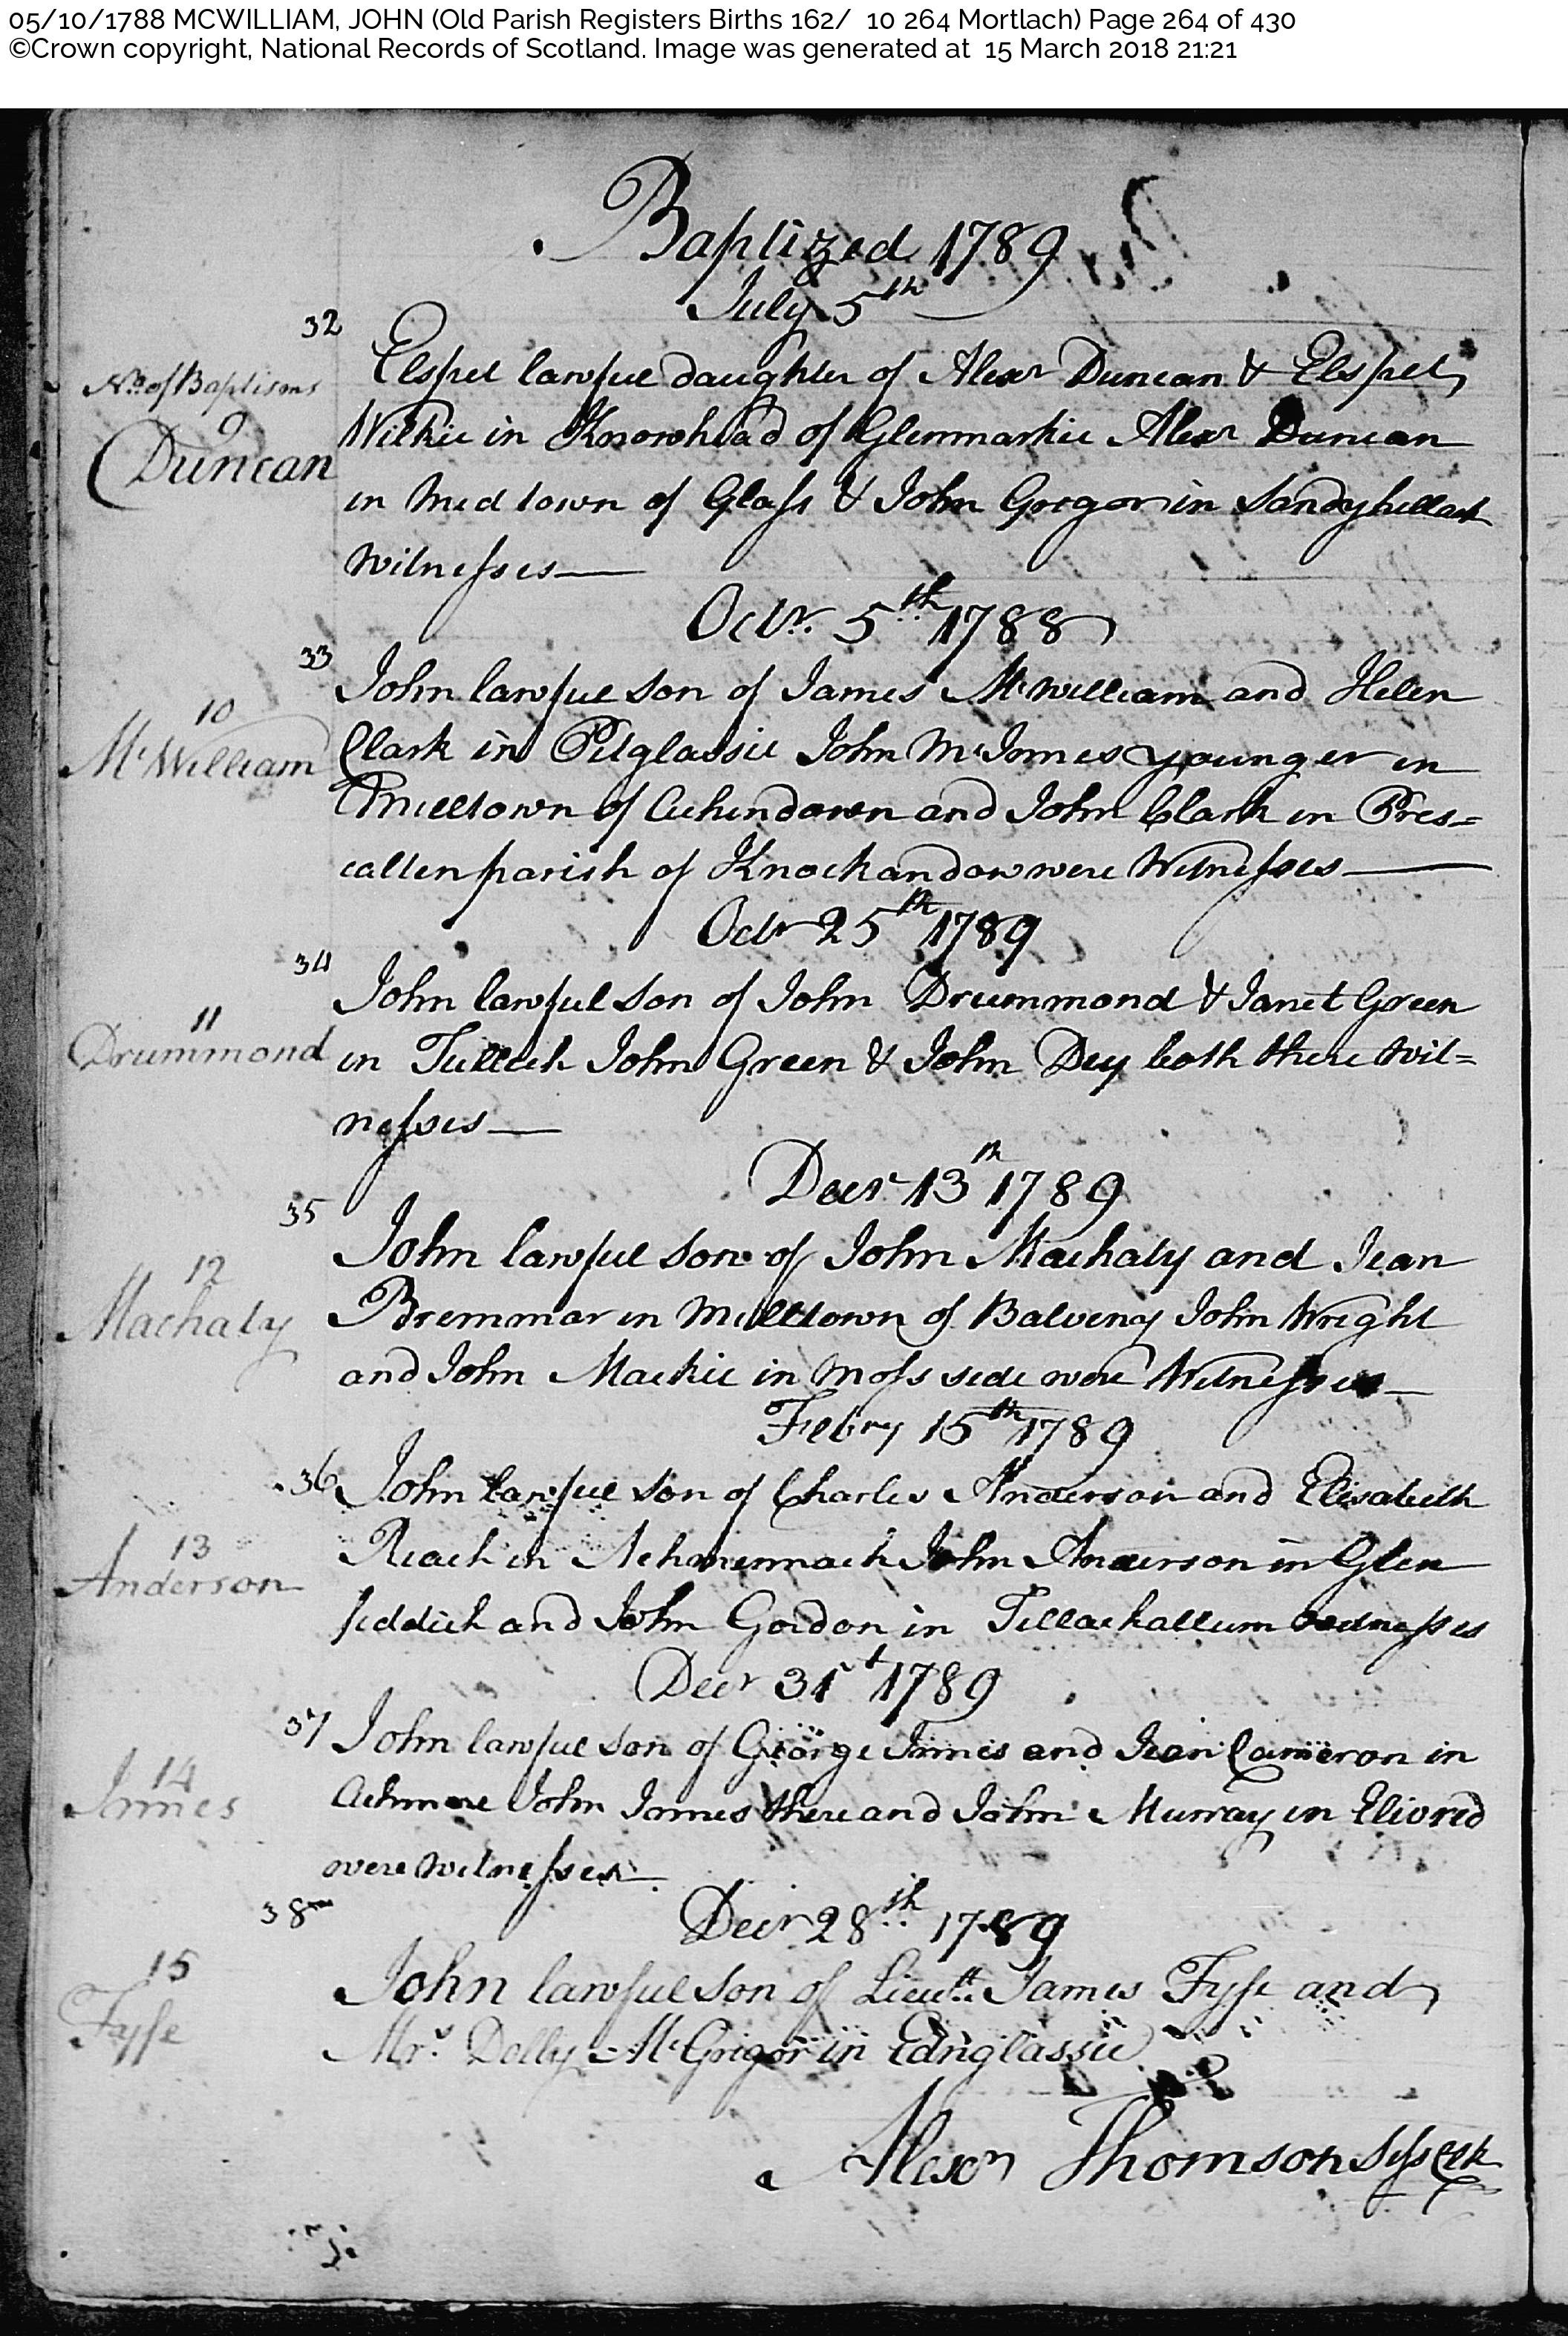 05/10/1788 MCWILLIAM, JOHN (Old Parish Registers Births 162/ 10 264 Mortlach) Page 264 of 430
©Crown copyright, National Records of Scotland. Image was generated at 15 March 2018 21:21
Baptized 1789
July 5th
32
No. of Baptisms
9
Duncan
Elspet lawful daughter of Alexr Duncan & Elspet
Wilkie in of Glenmarkie Alexr Duncan
in Midtown of Glass & John Gregor in Sandyhillock
Witnesses
Octr. 5th 1788
33
10
McWilliam
John lawful son of James McWilliam and Helen
Clark in Pitglassie John McInnes younger in
Milltown of Achindown and John Clark in Pres=
calten parish of Knockandow were Witnesses
Octr 25th 1789
34
11
Drummond
John lawful son of John Drummond & Janet Green
in Tulloch John Green & John Dey both there Wit=
nesses
Decr 13th 1789
35
12
Machaty
John lawful son of John Machaty and Jean
Bremmar in Milltown of Balveny John Wright
and John Mackie in Moss side were Witnesses
Febry 15th 1789
36
13
Anderson
John lawful son of Charles Anderson and Elisabeth
Reach in John Anderson in Glen
fiddich and John Gordon in Tillachallum witnesses
Decr 31st 1789
37
14
Innes
John lawful son of George Innes and Jean Cameron in
Achmore John Innes there and John Murray in
were witnesses
38
Decr 28th 1789
15
Fyfe
John lawful son of Lieutt. James Fyfe and
Mrs. Dolly McGrigor in Edinglassie
Alexr Thomson Sess Clk